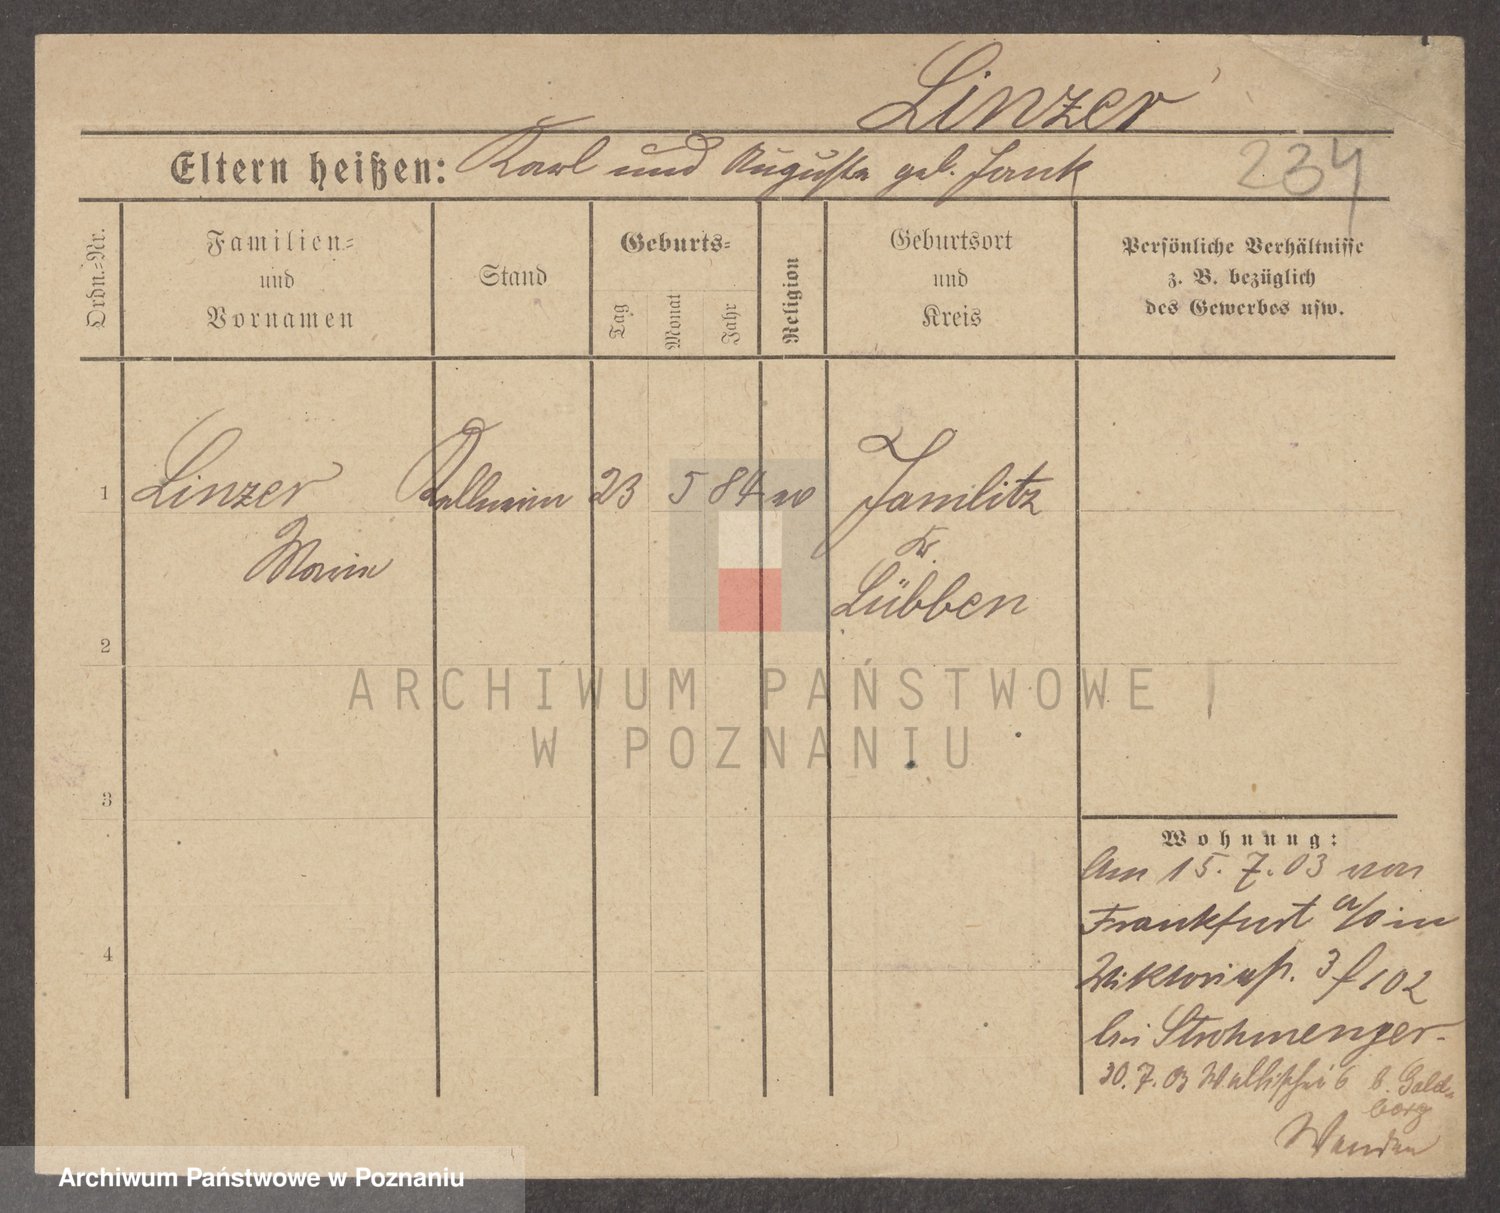 Linzer
Eltern heißen: Karl und Auguste geb. Jank
234
Ordn.=Nr.
Familien=
und
Vornamen
Stand
Geburts=
Tag
Monat
Jahr
Religion
Geburtsort
und
Kreis
Persönliche Verhältnisse
z. B. bezüglich
des Gewerbes usw.
1
Linzer
Marie
Kellnerin
23
5
84
ev
Jamlitz
Kr.
Lübben
2
3
4
Wohnung:
Am 15. 7. 03 von
Frankfurt a/O in
Viktoriastr. 3 f 102
bei Strohmenger.
30. 7. 03 Wallischei 6 b. Gold=
berg
ARCHIWUM PAŃSTWOWE
W POZNANIU
Archiwum Państwowe w Poznaniu